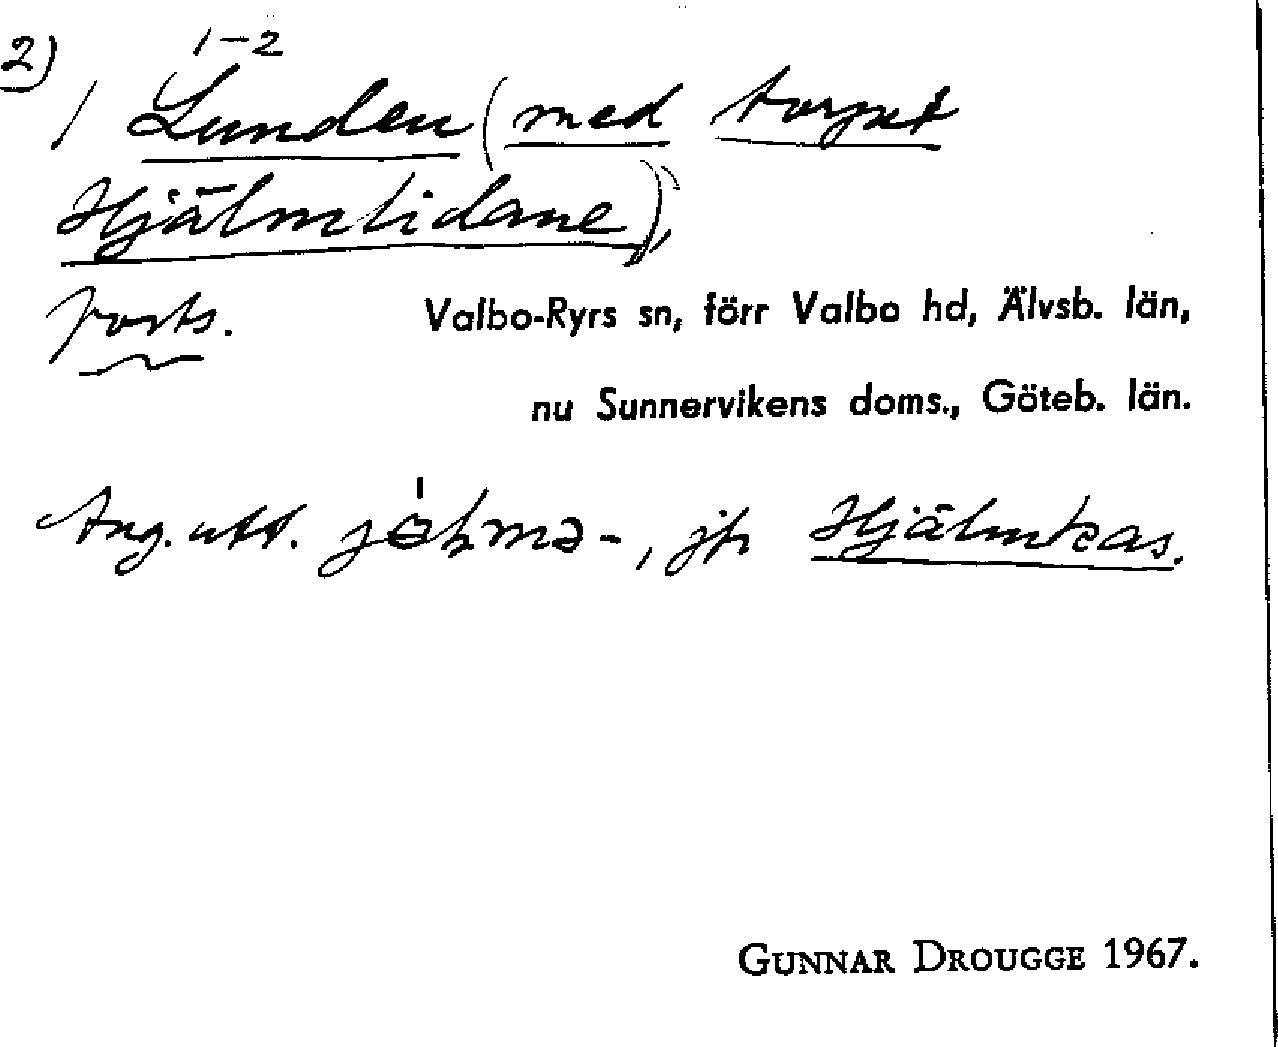 2)
1-2
/ Lunden (med torpet
Hjälmlidane),
forts.
Valbo-Ryrs sn, förr Valbo hd, Älvsb. län,
nu Sunnervikens doms., Göteb. län.
Ang. utt. , jfr Hjälmkas.
GUNNAR DROUGGE 1967.